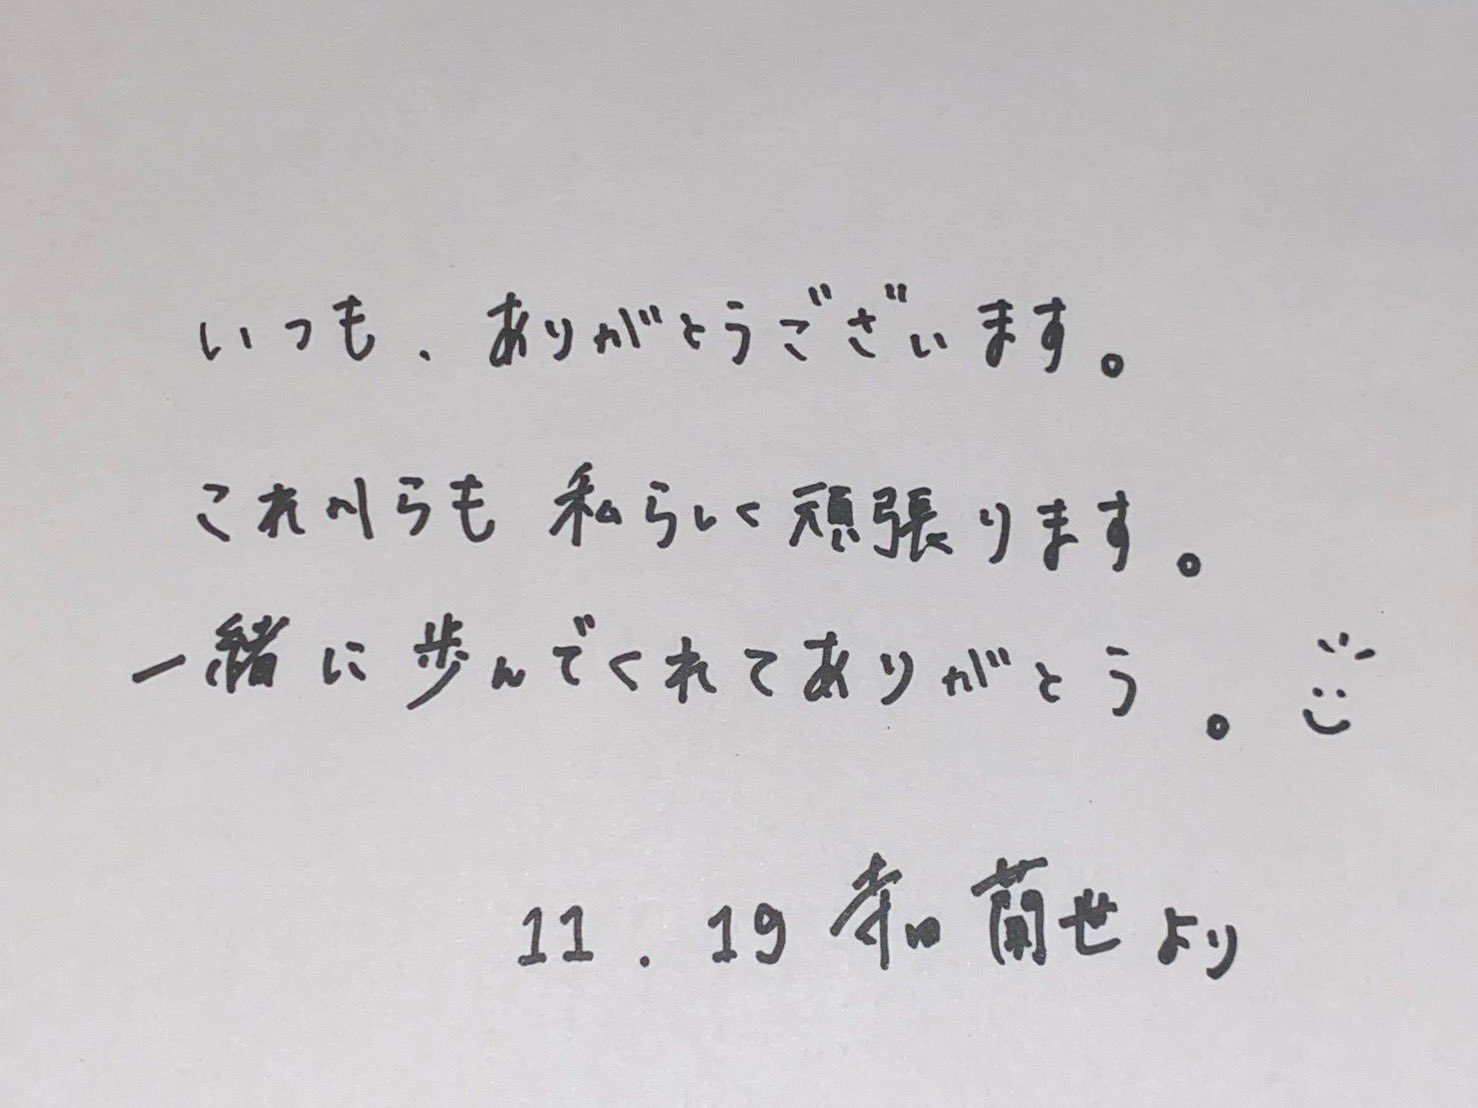 いつも、ありがとうございます。
これからも 私らしく頑張ります。
一緒に歩んでくれてありがとう。
11.19 寺田蘭世より